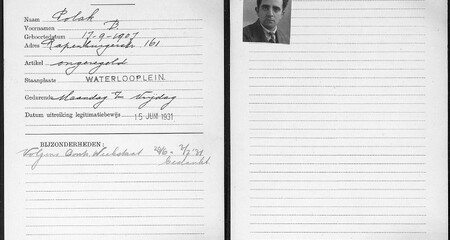 Naam Polak
Voornamen B.
Geboortedatum 17-9-1907
Adres Rapenburgerstr 161
Artikel ongeregeld
Staanplaats WATERLOOPLEIN.
Gedurende Maandag t/m Vrijdag
Datum uitreiking legitimatiebewijs 15 JUNI 1931
BIJZONDERHEDEN:
Volgens